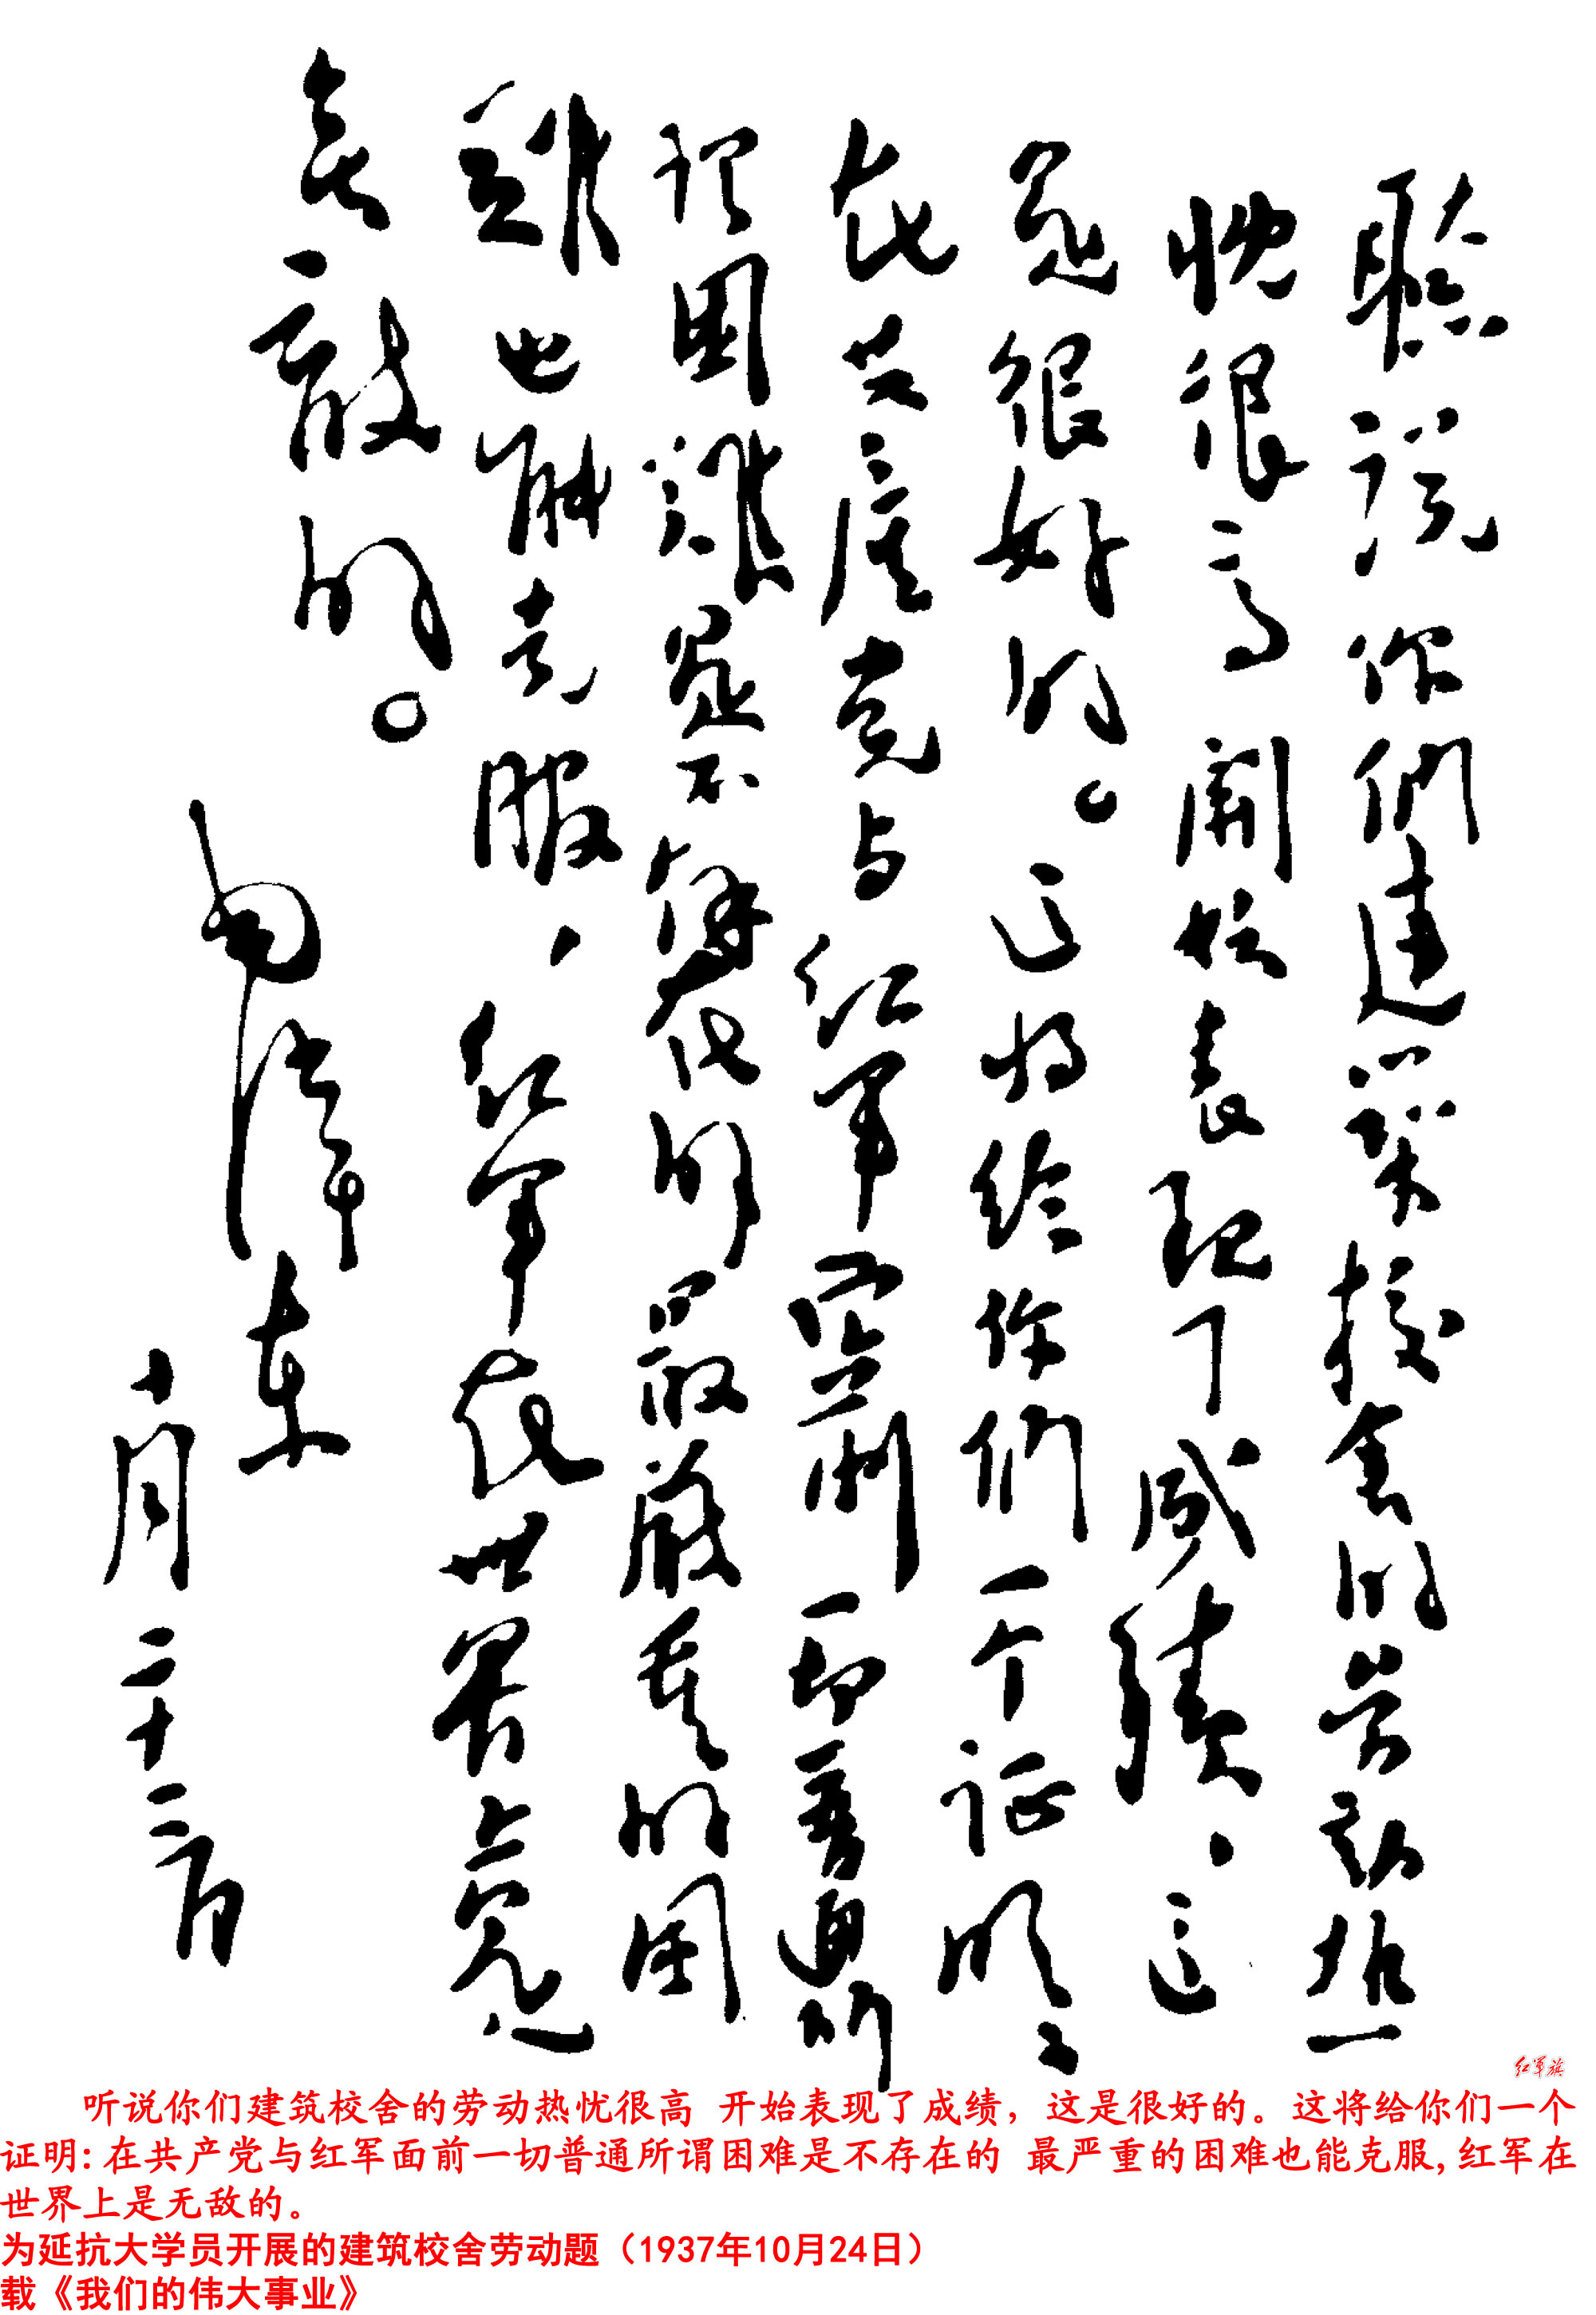 聽説你們建築校舍的劳动热
忱很高 開始表現了成績，这
是很好的。这将给你们一个证明：
在共産党与红军面前一切普通所
谓困難是不存在的最嚴重的困
難也能克服，红军在世界上是
無敵的。
毛泽东
十月二十三日
红军旗
听说你们建筑校舍的劳动热忱很高 开始表现了成绩，这是很好的。这将给你们一个
证明：在共产党与红军面前一切普通所谓困难是不存在的 最严重的困难也能克服，红军在
世界上是无敌的。
为延抗大学员开展的建筑校舍劳动题（1937年10月24日）
载《我们的伟大事业》